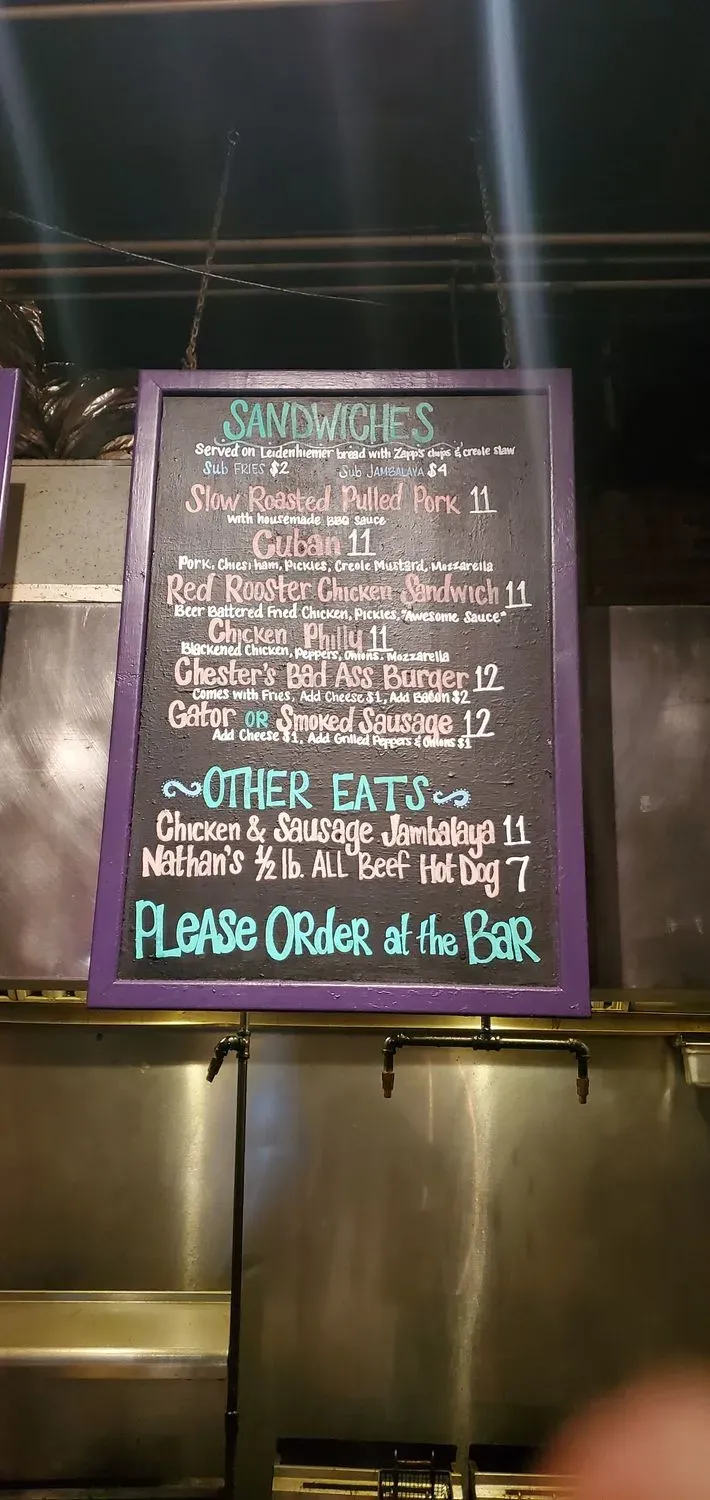 SANDWICHES
Served on Leidenhiemer bread with Zapp's chips & creole slaw
Sub FRIES $2 Sub JAMBALAYA $4
Slow Roasted Pulled Pork 11
with housemade BBQ sauce
Cuban 11
Pork, Chiesi ham, Pickles, Creole Mustard, Mozzarella
Red Rooster Chicken Sandwich 11
Beer Battered Fried Chicken, Pickles, "Awesome Sauce"
Chicken Philly 11
Blackened Chicken, Peppers, Onions, Mozzarella
Chester's Bad Ass Burger 12
Comes with Fries, Add Cheese $1, Add Bacon $2
Gator OR Smoked Sausage 12
Add Cheese $1, Add Grilled Peppers & Onions $1
~OTHER EATS~
Chicken & Sausage Jambalaya 11
Nathan's 1/2 lb. ALL Beef Hot Dog 7
PLeASe ORdeR at the BaR